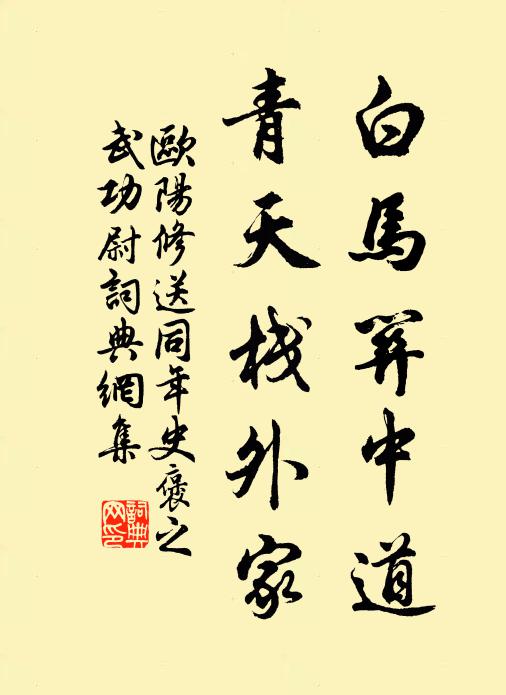 白馬關中道
青天栈外家
歐陽修送同年史褒之
武功尉詞典網集
詞典
网印